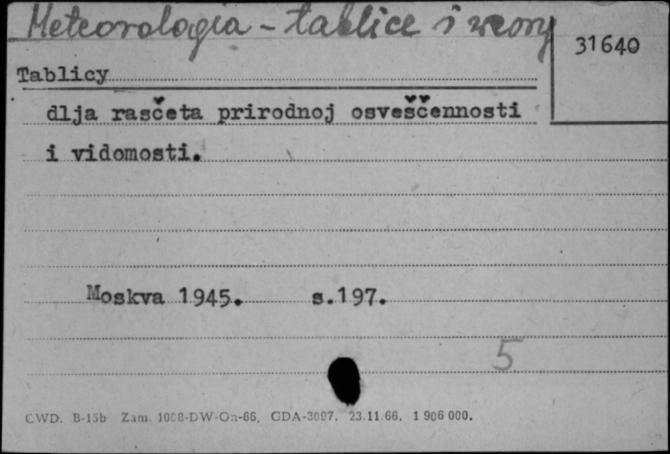 Meteorologia - tablice i wzory
31640
Tablicy
dlja rasčeta prirodnoj osveščennosti
i vidomosti.
Moskva 1945. s.197.
5
CWD. B-15b Zam. 1008-DW-Oa-66. GDA-3097. 23.11.66. 1 906 000.